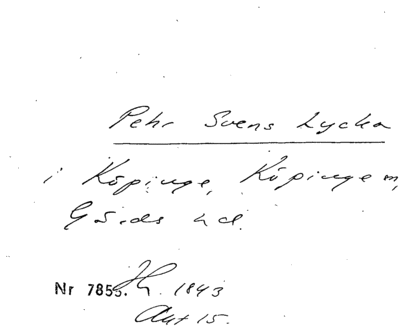 Pehr Svens Lycka
i Köpinge, Köpinge m,
Gärds hd.
Nr 7855. 1843
Akt 15.